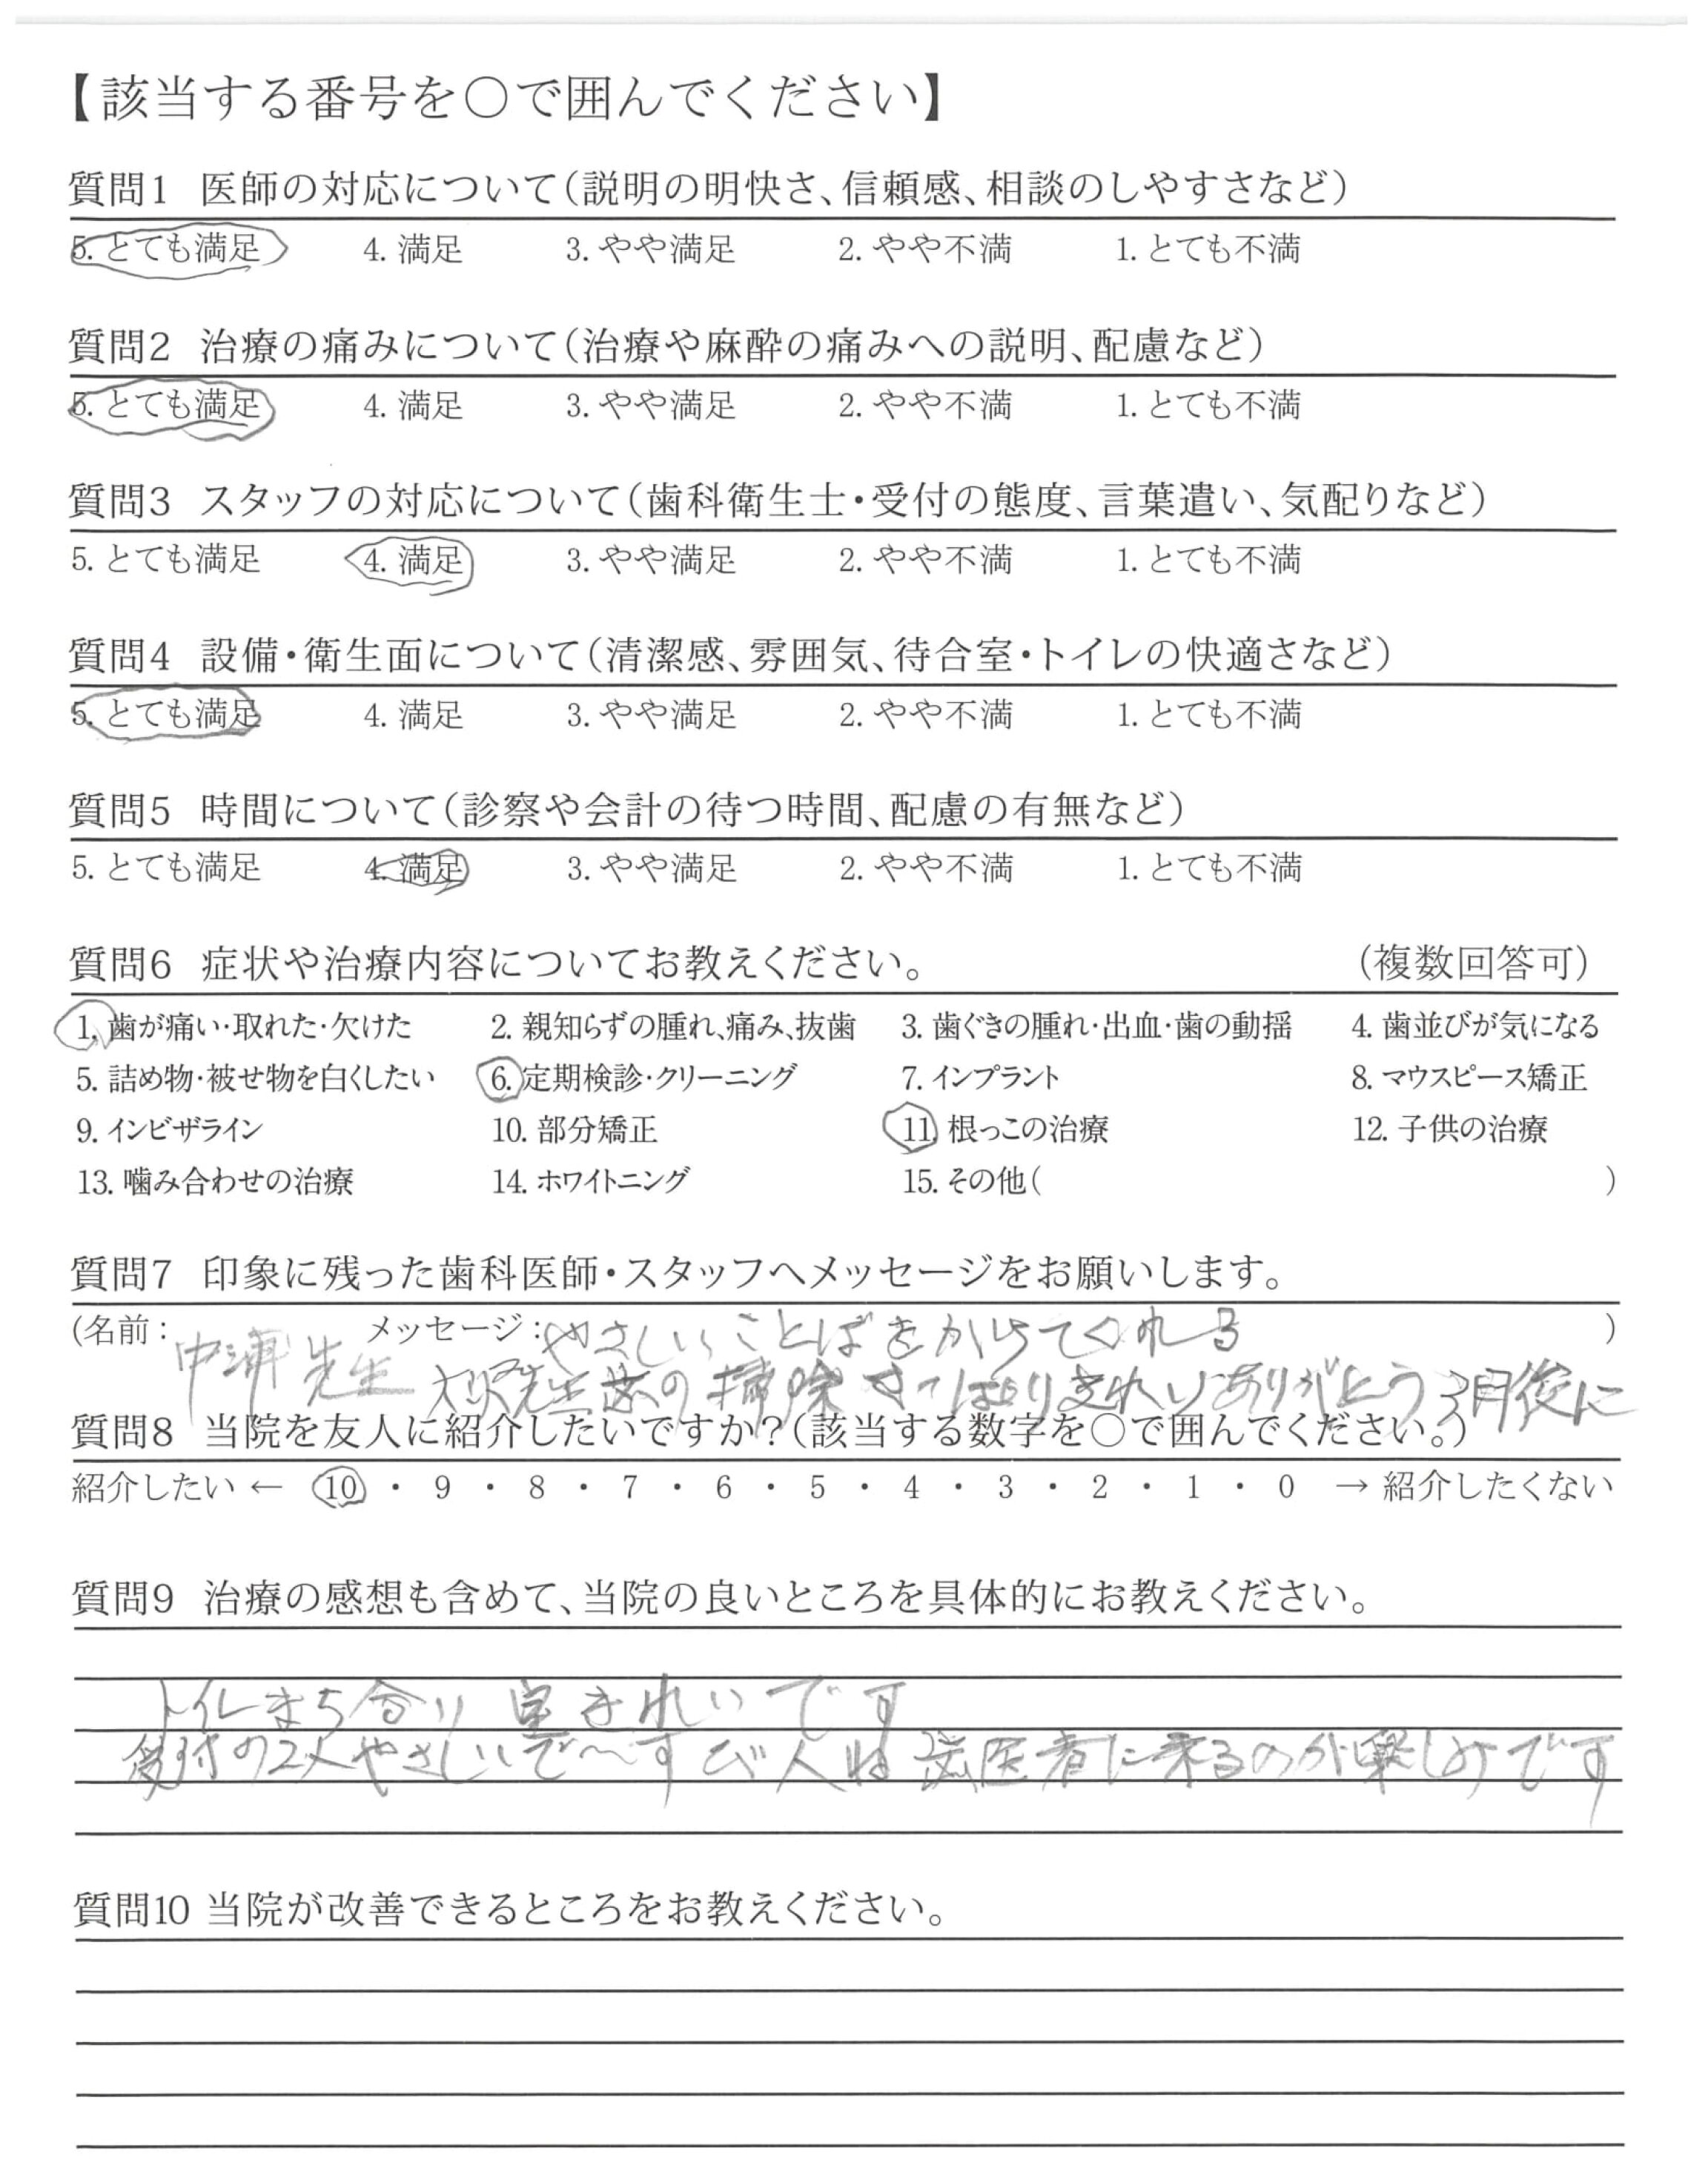 【該当する番号を○で囲んでください】
質問1 医師の対応について(説明の明快さ、信頼感、相談のしやすさなど)
5. とても満足 4. 満足 3. やや満足 2. やや不満 1. とても不満
質問2 治療の痛みについて(治療や麻酔の痛みへの説明、配慮など)
5. とても満足 4. 満足 3. やや満足 2. やや不満 1. とても不満
質問3 スタッフの対応について(歯科衛生士・受付の態度、言葉遣い、気配りなど)
5. とても満足 4. 満足 3. やや満足 2. やや不満 1. とても不満
質問4 設備・衛生面について(清潔感、雰囲気、待合室・トイレの快適さなど)
5. とても満足 4. 満足 3. やや満足 2. やや不満 1. とても不満
質問5 時間について(診察や会計の待つ時間、配慮の有無など)
5. とても満足 4. 満足 3. やや満足 2. やや不満 1. とても不満
質問6 症状や治療内容についてお教えください。 (複数回答可)
1. 歯が痛い・取れた・欠けた 2. 親知らずの腫れ、痛み、抜歯 3. 歯ぐきの腫れ・出血・歯の動揺 4. 歯並びが気になる
5. 詰め物・被せ物を白くしたい 6. 定期検診・クリーニング 7. インプラント 8. マウスピース矯正
9. インビザライン 10. 部分矯正 11. 根っこの治療 12. 子供の治療
13. 噛み合わせの治療 14. ホワイトニング 15. その他( )
質問7 印象に残った歯科医師・スタッフへメッセージをお願いします。
(名前: メッセージ:やさしいことばをかけてくれる )
中浦先生 先生歯の掃除 きれいありがとう 3月後に
質問8 当院を友人に紹介したいですか?(該当する数字を○で囲んでください。)
紹介したい ← 10 ・ 9 ・ 8 ・ 7 ・ 6 ・ 5 ・ 4 ・ 3 ・ 2 ・ 1 ・ 0 → 紹介したくない
質問9 治療の感想も含めて、当院の良いところを具体的にお教えください。
トイレまち合り室きれいです
受付の2人やさしいで〜す 人は歯医者に来るのが楽しみです
質問10 当院が改善できるところをお教えください。